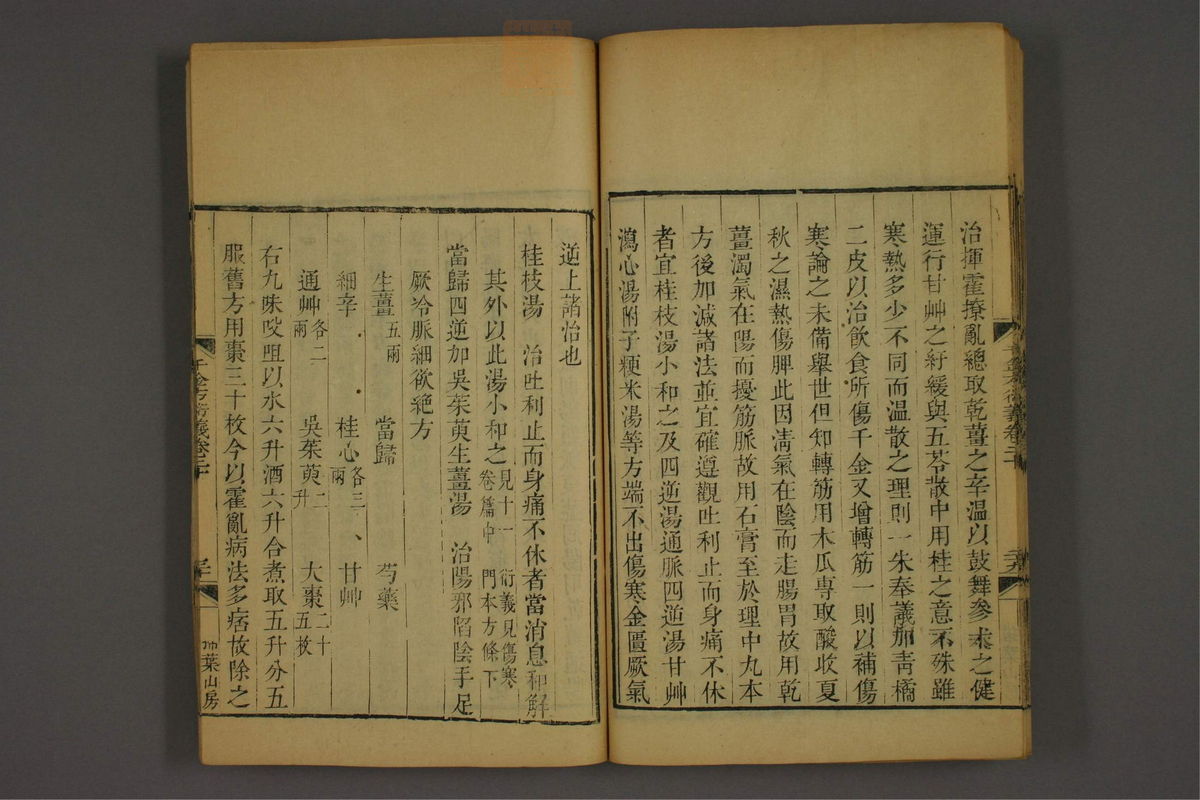 治揮霍撩亂總取乾薑之辛溫以鼓舞參朮之健
運行甘艸之紆緩與五苓散中用桂之意不殊雖
寒熱多少不同而溫散之理則一朱奉議加靑橘
二皮以治飮食所傷千金又增轉筋一則以補傷
寒論之未備舉世但知轉筋用木瓜專取酸收夏
秋之濕熱傷脾此因淸氣在陰而走腸胃故用乾
薑濁氣在陽而擾筋脈故用石膏至於理中丸本
方後加減諸法並宜確遵觀吐利止而身痛不休
者宜桂枝湯小和之及四逆湯通脈四逆湯甘艸
瀉心湯附子粳米湯等方端不出傷寒金匱厥氣
逆上諸治也
桂枝湯　治吐利止而身痛不休者當消息和解
其外以此湯小和之見十一卷篇中　衍義見傷寒門本方條下
當歸四逆加吳茱萸生薑湯　治陽邪陷陰手足
厥冷脈細欲絕方
生薑五兩　當歸　芍藥
細辛　桂心各三兩　甘艸
通艸各二兩　吳茱萸二升　大棗二十五枚
右九味㕮咀以水六升酒六升合煮取五升分五
服舊方用棗三十枚今以霍亂病法多痞故除之
千金方衍義卷二十
掃葉山房